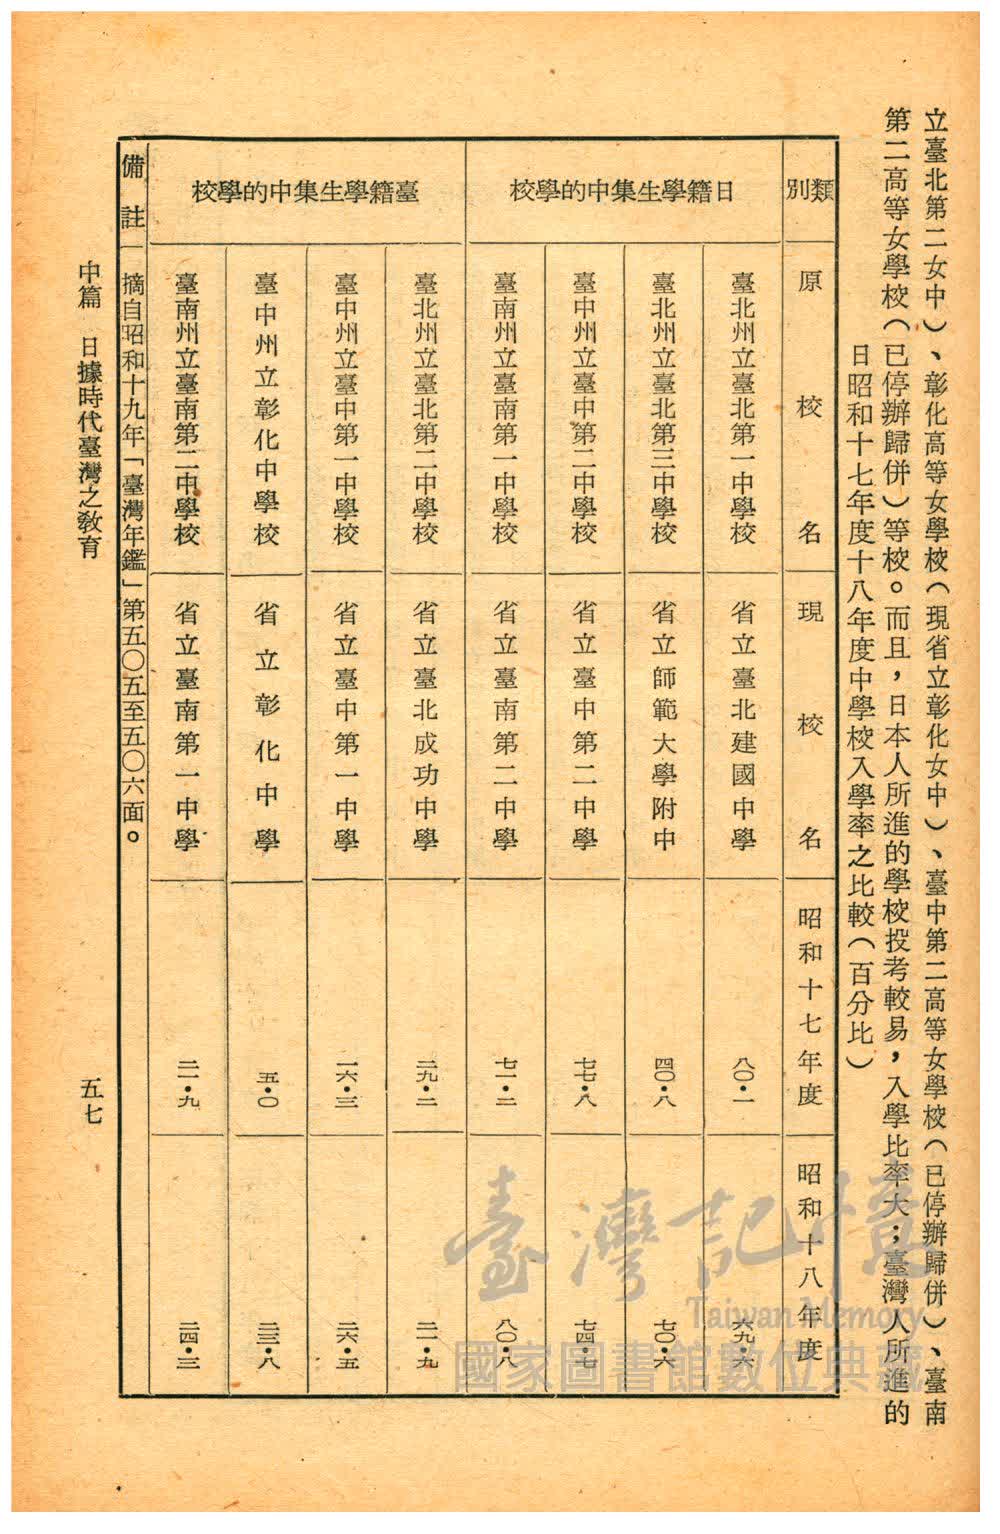 立臺北第二女中）、彰化高等女學校（現省立彰化女中）、臺中第二高等女學校（已停辦歸併）、臺南
第二高等女學校（已停辦歸併）等校。而且，日本人所進的學校投考較易，入學比率大；臺灣人所進的
日昭和十七年度十八年度中學校入學率之比較（百分比）
類別 原校名 現校名 昭和十七年度 昭和十八年度
日籍學生集中的學校
臺北州立臺北第一中學校 省立臺北建國中學 八〇•一 六九•六
臺北州立臺北第三中學校 省立師範大學附中 四〇•八 七〇•六
臺中州立臺中第二中學校 省立臺中第二中學 七七•八 七四•七
臺南州立臺南第一中學校 省立臺南第二中學 七一•二 八〇•八
臺籍學生集中的學校
臺北州立臺北第二中學校 省立臺北成功中學 二九•二 二一•九
臺中州立臺中第一中學校 省立臺中第一中學 一六•三 二六•五
臺中州立彰化中學校 省立彰化中學 五•〇 二三•八
臺南州立臺南第二中學校 省立臺南第一中學 二一•九 二四•三
備註 摘自昭和十九年「臺灣年鑑」第五〇五至五〇六面。
中篇 日據時代臺灣之教育
五七
臺灣記憶
Taiwan Memory
國家圖書館數位典藏